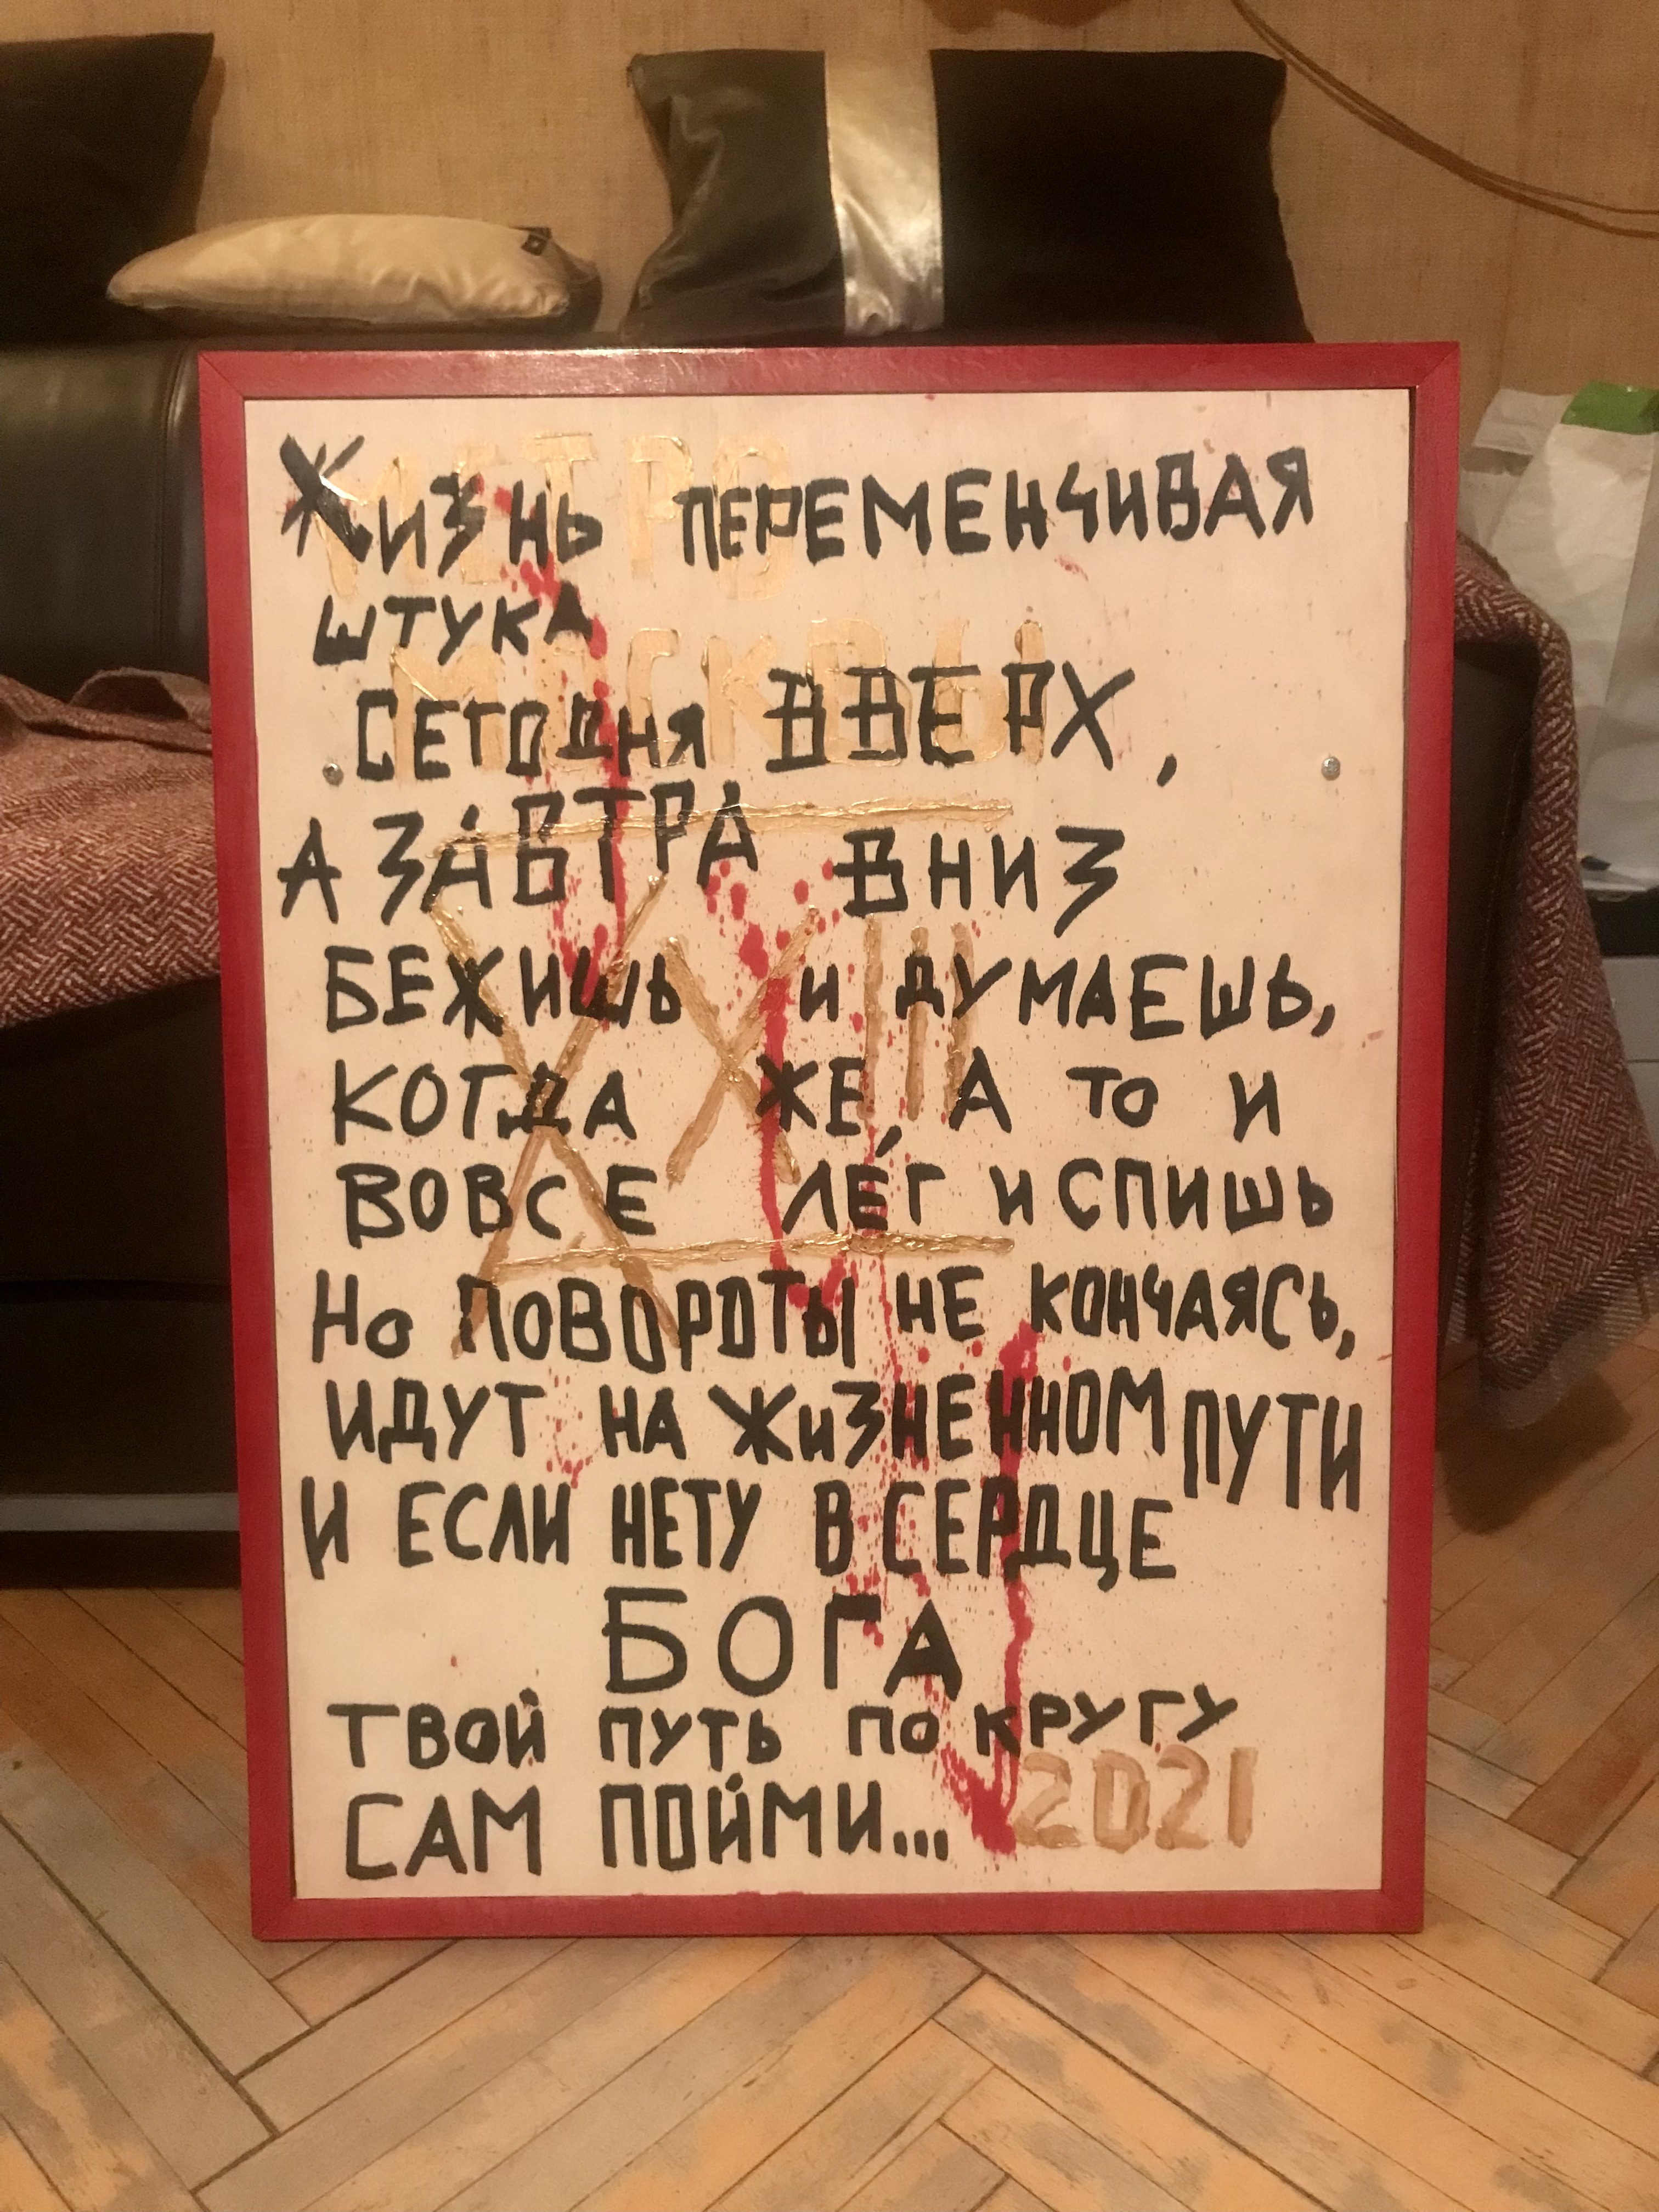 МЕТРО
МОСКВЫ
XXIII
Жизнь переменчивая
штука
Сегодня ВВЕРХ,
А ЗАВТРА ВНИЗ
БЕЖИШЬ и ДУМАЕШЬ,
КОГДА ЖЕ, А то И
ВОВСЕ ЛЁГ и СПИШЬ
Но ПОВОРОТЫ НЕ КОНЧАЯСЬ,
ИДУТ НА ЖИЗНЕННОМ ПУТИ
И ЕСЛИ НЕТУ В СЕРДЦЕ
БОГА
ТВОЙ ПУТЬ ПО КРУГУ
САМ ПОЙМИ...
2021